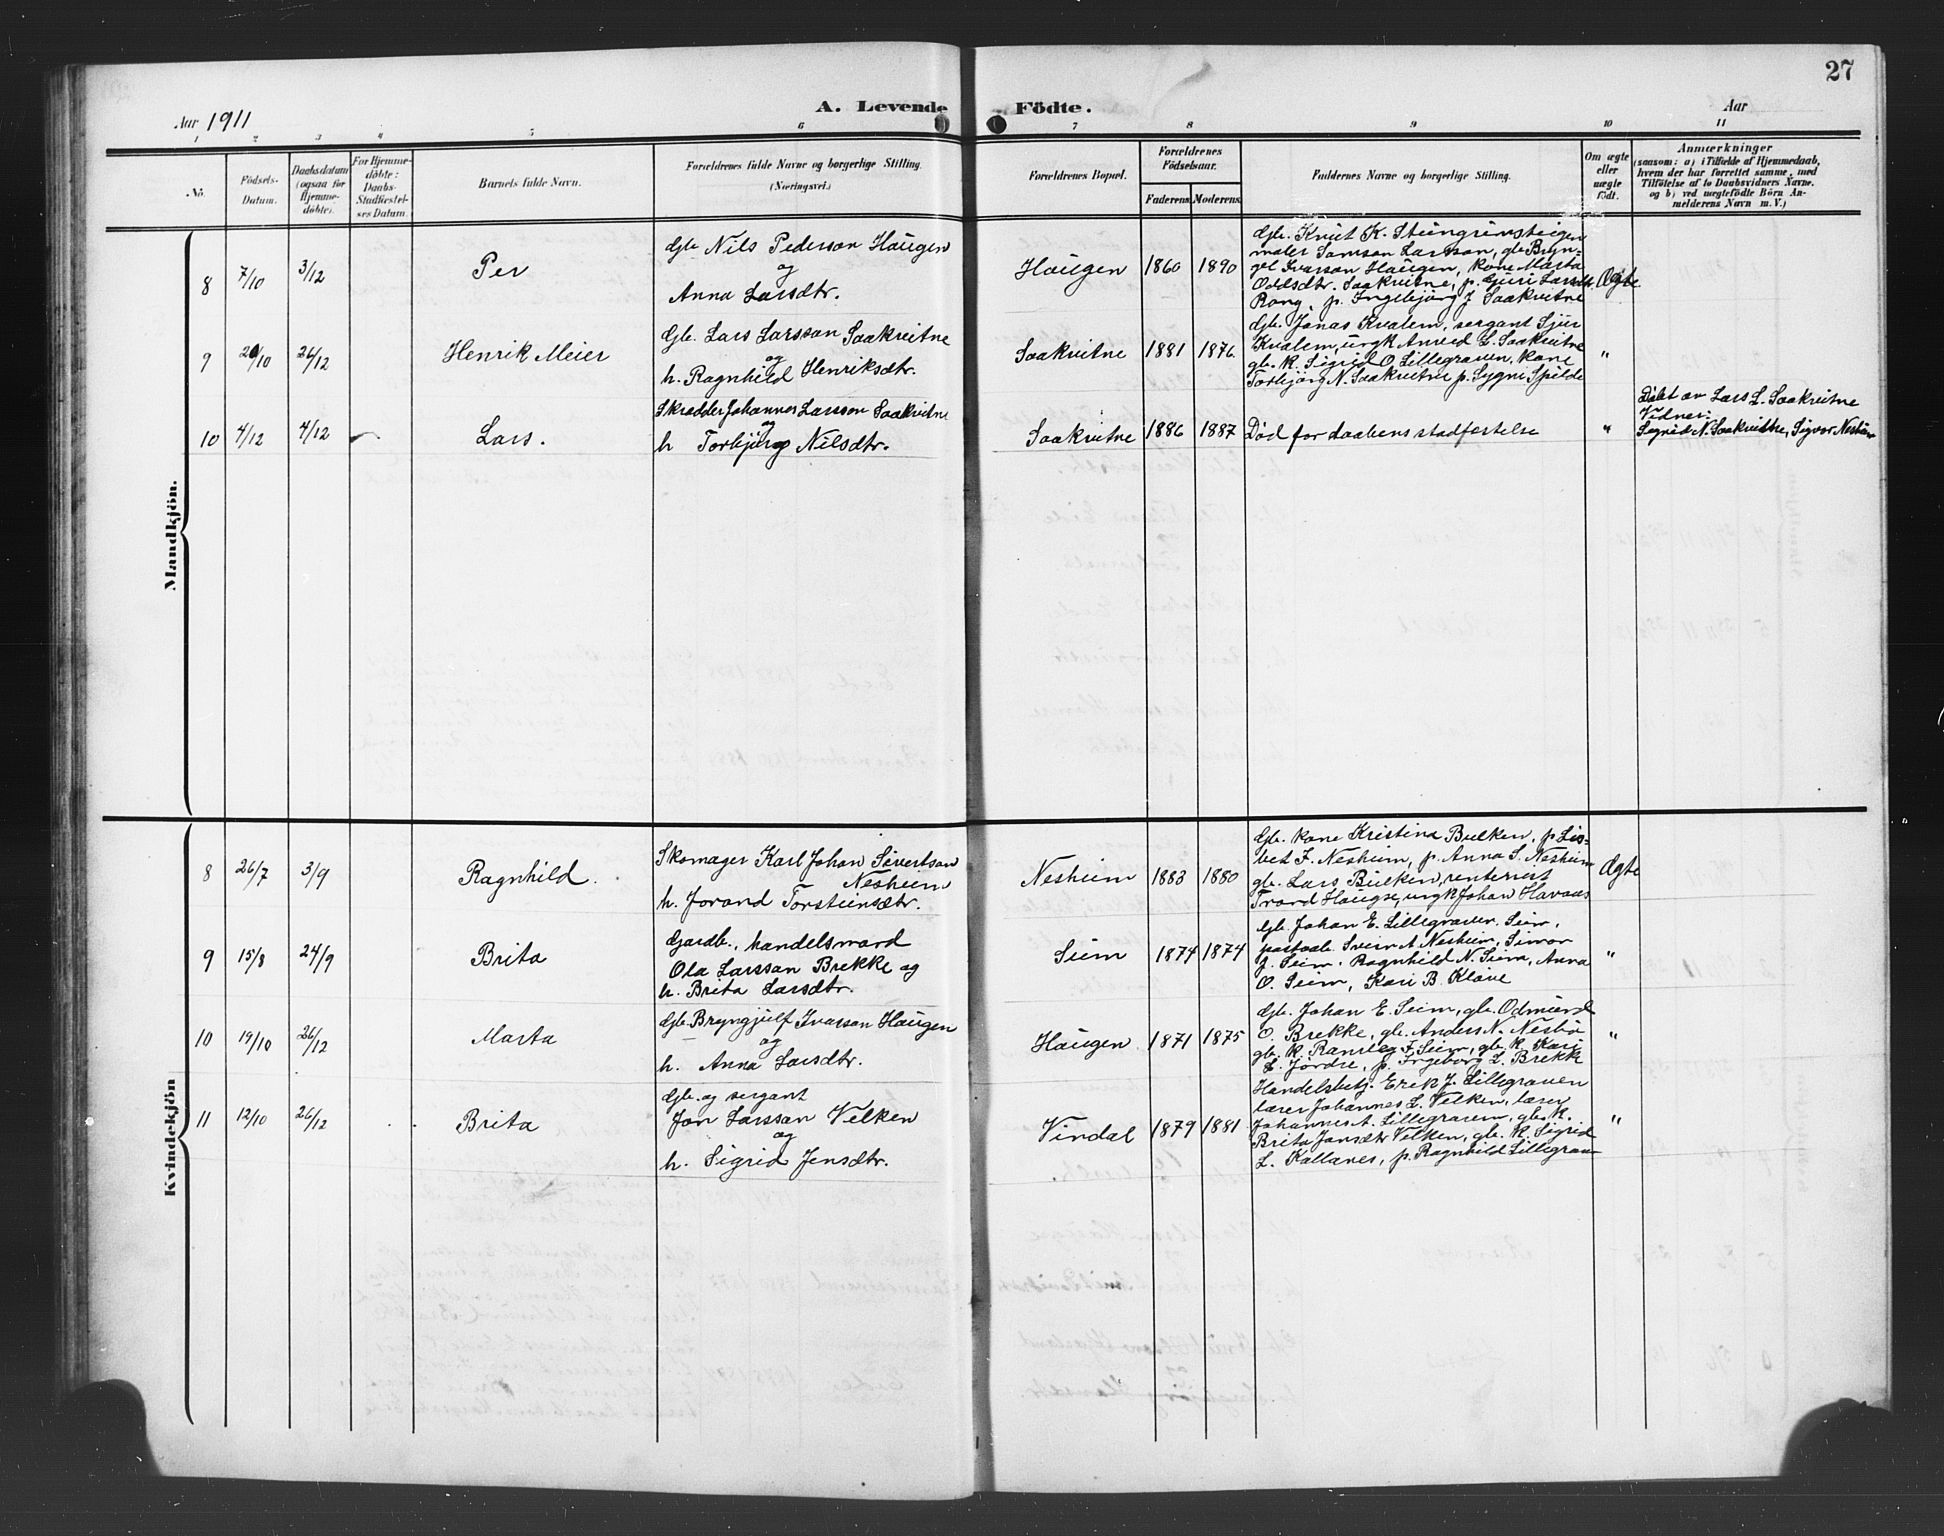 27
A. Levende Födte.
Aar 1911
Aar
1 2 3 4 5 6 7 8 9 10 11
No.
Födsels-
Datum.
Daabsdatum
(ogsaa for
Hjemme-
döbte).
For Hjemme-
döbte:
Daabs-
Stadfæstel-
ses Datum.
Barnets fulde Navn.
Forældrenes fulde Navne og borgerlige Stilling.
(Næringsvei.)
Forældrenes Bopæl.
Forældrenes
Födselsaar.
Faderens Moderens
Faddernes Navne og borgerlige Stilling.
Om ægte
eller
uægte
födt.
Anmærkninger
(saasom: a) i Tilfælde af Hjemmedaab,
hvem der har forrettet samme, med
Tilföielse af to Daabsvidners Navne,
og b) ved uægtefödte Börn An-
melderens Navn m. V.)
Mandkjön.
8 7/10 3/12 Per
Gb. Nils Pederson Haugen
og
Anna Larsdtr.
Haugen 1860 1890
Gb. Knut K. Steingrimsteigen
maler Samson Larsson, gb. Bryn-
gel Ivarsson Haugen, kone Marta
Oddsdtr. Saakvitne, p. Guri Larsdt.
Rong, p. Ingebjörg J. Saakvitne
Ægte
9 20/10 26/12 Henrik Meier
Gb. Lars Larsson Saakvitne
og
h. Ragnhild Henriksdtr.
Saakvitne 1881 1876
Gb. Jonas Kvalem, sergant Sjur
Kvalem, urgk Anved L. Saakvitne
gb. k. Sigrid O. Lillegraven, kone
Torbjörg N. Saakvitne p. Sygni Spilde
"
10 4/12 4/12 Lars.
Skredder Johannes Larsson Saakvitne
og
h Torbjörg Nilsdtr.
Saakvitne 1886 1887 Död for daabens stadfestelse
"
Döbt av Lars L. Saakvitne
Vidner:
Sigrid N. Saakvitne, Sigvor
Kvindekjön
8 26/7 3/9 Ragnhild.
Skomager Karl Johan Sivertson
Nesheim
h. Jorand Torsteinsdtr.
Nesheim 1883 1880
Gb. kone Kristina Bulken, p. Lis-
bet F. Nesheim, p. Anna S. Nesheim
gb. Lars Bulken, renteniert
Trond Haugse, urgk Johan Havaas
Ægte
9 15/8 24/9 Brita
Gardb., handelsmand
Ola Larsson Brekke og
h. Brita Larsdtr.
Seim 1874 1874
Gb. Johan E. Lillegraven. Seim,
postaab. Svein A. Nesheim, Simon
J. Seim, Ragnhild N. Seim, Anna
O. Seim, Kari B. Kløve
"
10 19/10 26/12 Marta
Gb. Bryngjulf Ivarsson Haugen
og
h. Anna Larsdtr.
Haugen 1871 1875
Gb. Johan E. Seim, gb. Odmund
O. Brekke, gb. Anders N. Nesbö
gb. k. Ranveig F. Seim, gb. k. Kari
L. Jördre, p. Ingeborg L. Brekk
"
11 12/10 26/12 Brita
Gb. og sergant
Jon Larsson Velken
og
h. Sigrid Jensdtr.
Vindal 1879 1881
Handelsbetj. Erik J. Lillegraven
lærer Johannes L. Velken, lærer
Johannes A. Lillegraven, gb. k.
Brita Jonsdtr Velken, gb. k. Sigrid
L. Kollanes, p. Ragnhild Lillegraven
"